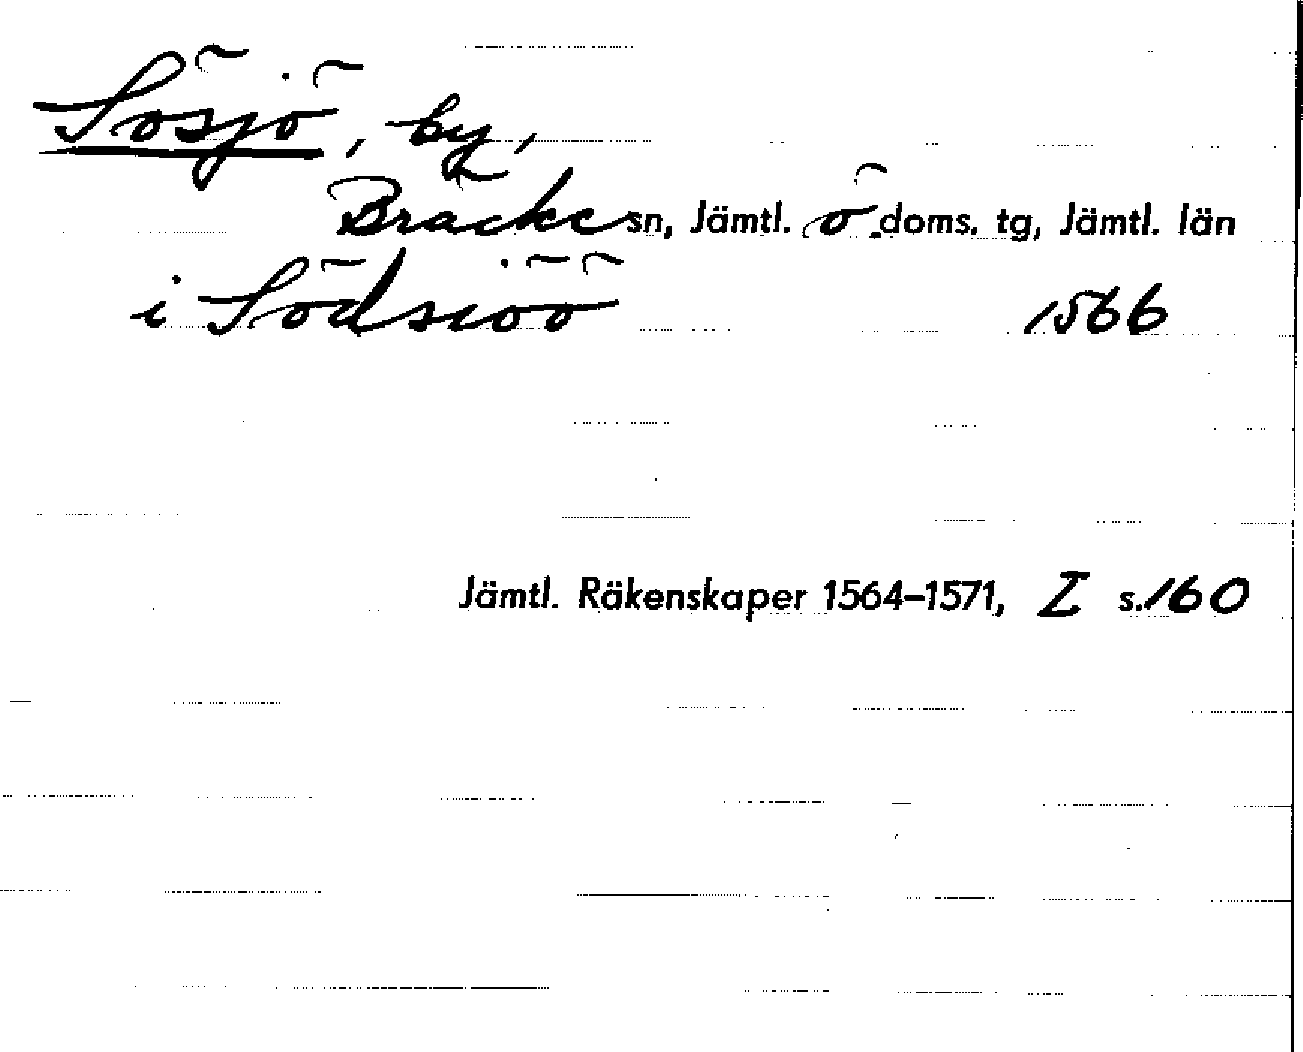 Sösjö, by,
Bräcke sn, Jämtl. ö. doms. tg, Jämtl. län
i Södsiöö 1566
Jämtl. Räkenskaper 1564–1571, I s. 160